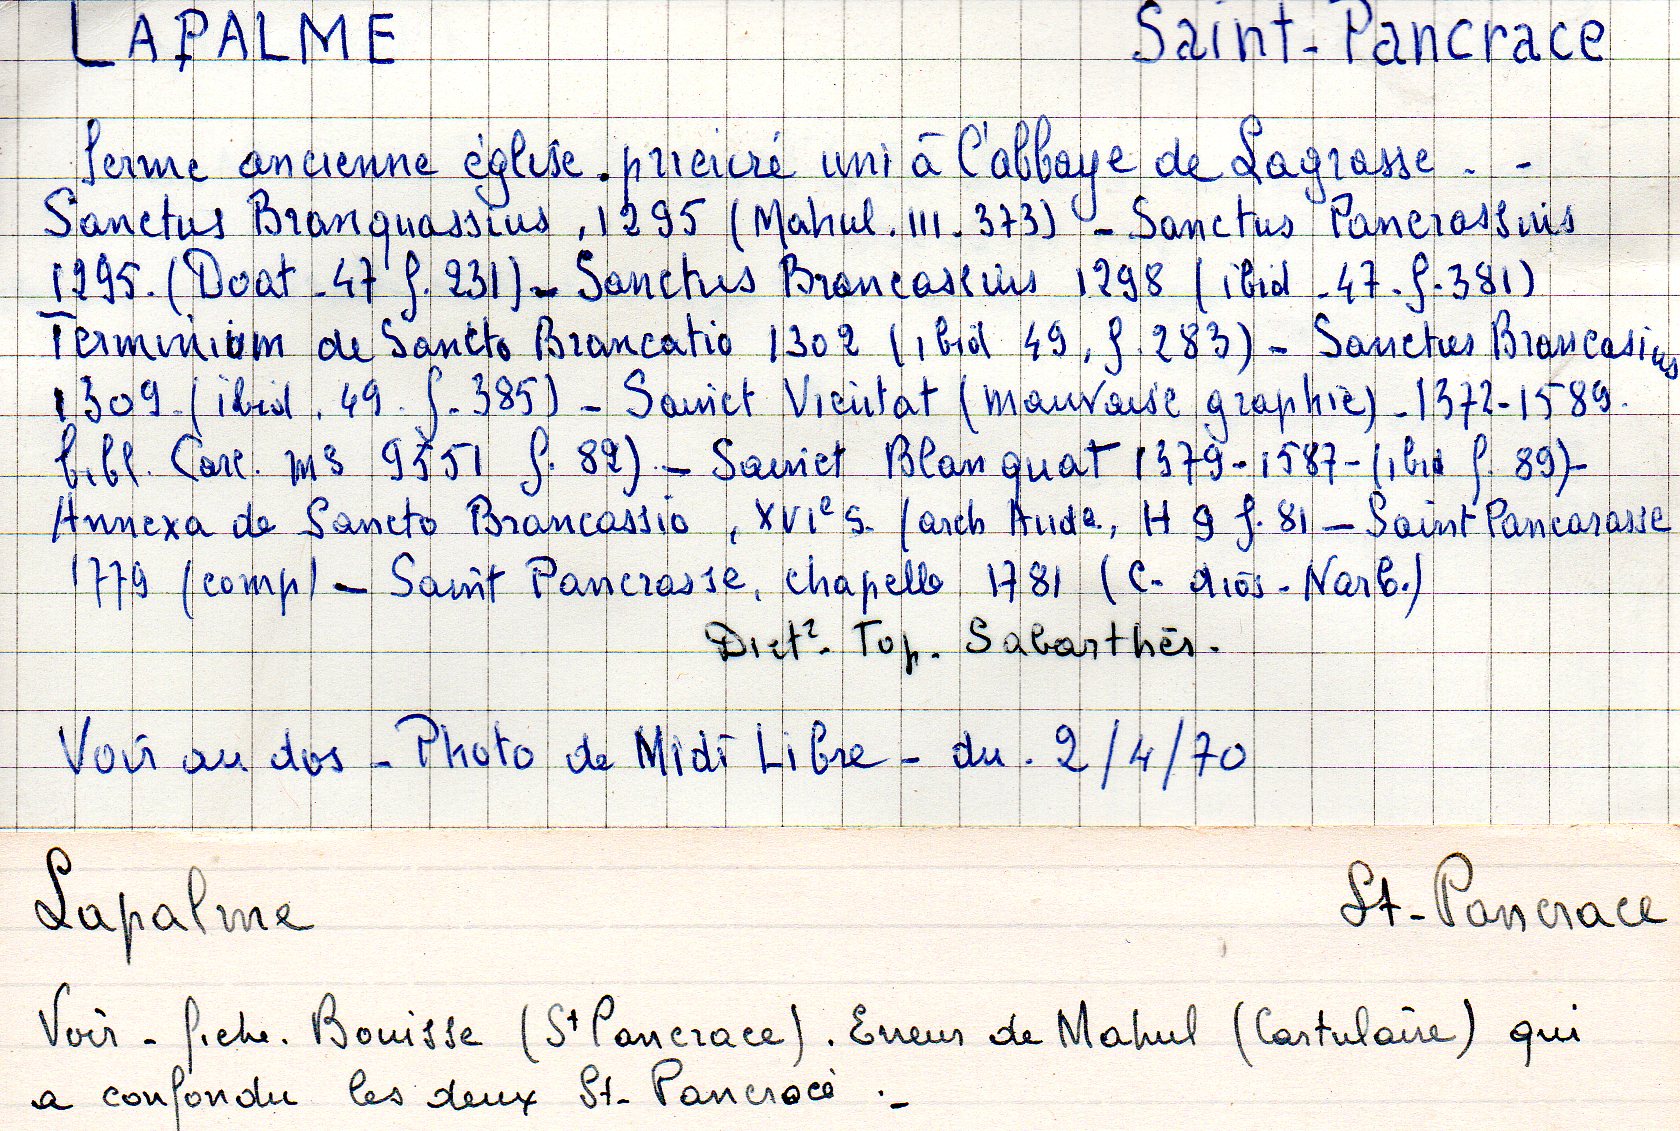 LAPALME Saint-Pancrace
ferme ancienne église. prieuré uni à l'abbaye de Lagrasse - -
Sanctus Branquassius, 1295 (Mahul. III. 373) - Sanctus Pancrassius
1295. (Doat - 47 f. 231) - Sanctus Brancassius 1298 (ibid - 47 - f. 381)
Terminium de Sancto Brancatio 1302 (ibid 49, f. 283) - Sanctus Brancasius
1309. (ibid. 49. f. 385) - Sainct (mauvaise graphie) - 1372-1589.
bibl. Carc. ms 9551 f. 82) - Sainct Blanquat 1379-1587 - (ibid f. 89) -
Annexa de Sancto Brancassio, XVIe s. (arch Aude, H 9 f. 81 - Saint Pancarasse
1779 (comp) - Saint Pancrasse, chapelle 1781 (C. dios. Narb.)
Dictre. Top. Sabarthès.
Voir au dos - Photo de Midi Libre - du. 2/4/70
Lapalme St-Pancrace
Voir - fiche. Bouisse (St Pancrace). Erreur de Mahul (Cartulaire) qui
a confondu les deux St-Pancrace. -